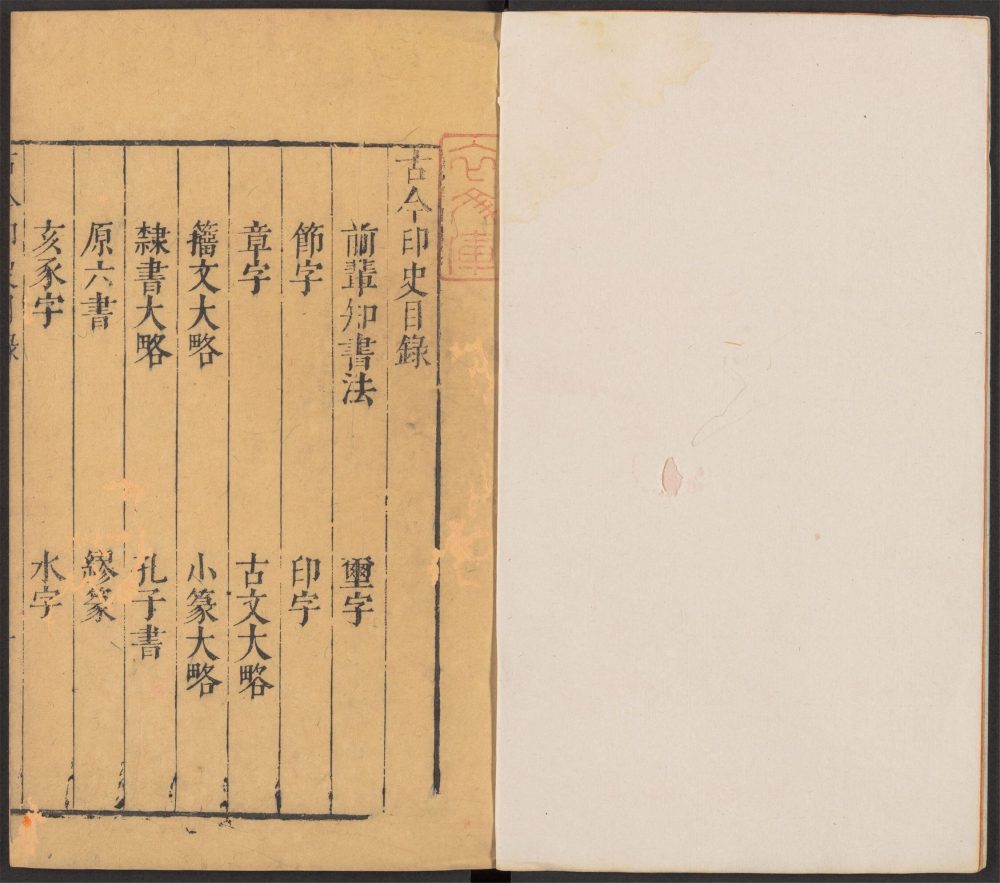 古今印史目錄
前輩知書法
壐字
節字
印字
章字
古文大略
籀文大略
小篆大略
隸書大略
孔子書
原六書
繆篆
亥豕字
水字